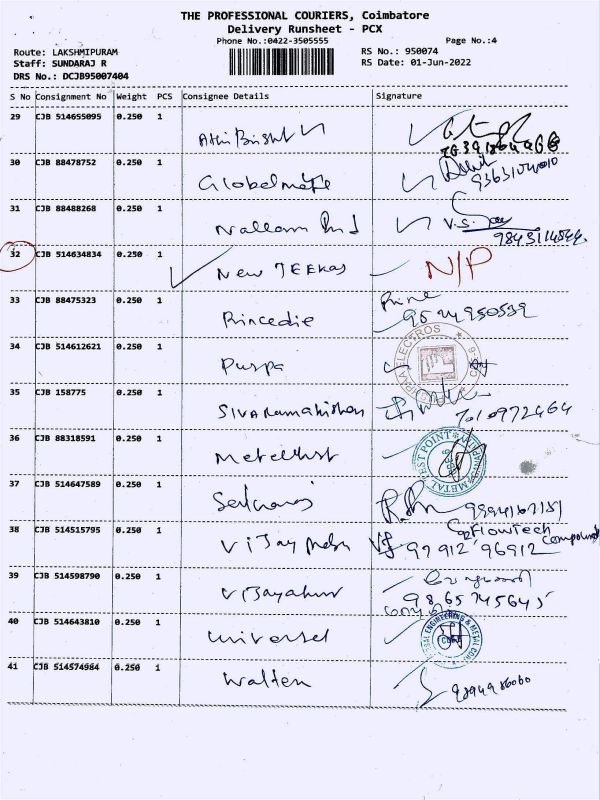 THE PROFESSIONAL COURIERS, Coimbatore
Delivery Runsheet - PCX
Phone No.:0422-3505555 Page No.:4
Route: LAKSHMIPURAM RS No.: 950074
Staff: SUNDARAJ R RS Date: 01-Jun-2022
DRS No.: DCJB95007404
S No Consignment No Weight PCS Consignee Details Signature
29 CJB 514655095 0.250 1
30 CJB 88478752 0.250 1
Globalmate
31 CJB 88488268 0.250 1
Nallam Ind V.S.
32 CJB 514634834 0.250 1
New TEEKAS N/P
33 CJB 88475323 0.250 1
Princedie Prince
34 CJB 514612621 0.250 1
Puspa
35 CJB 158775 0.250 1
Sivaramakishan 7010972464
36 CJB 88318591 0.250 1
METAL TEST POINT
37 CJB 514647589 0.250 1
38 CJB 514515795 0.250 1
Vijay FlowTech Compound
97912 96912
39 CJB 514598790 0.250 1
9865745645
40 CJB 514643810 0.250 1
Universal ENGINEERING &
41 CJB 514574984 0.250 1
Walten